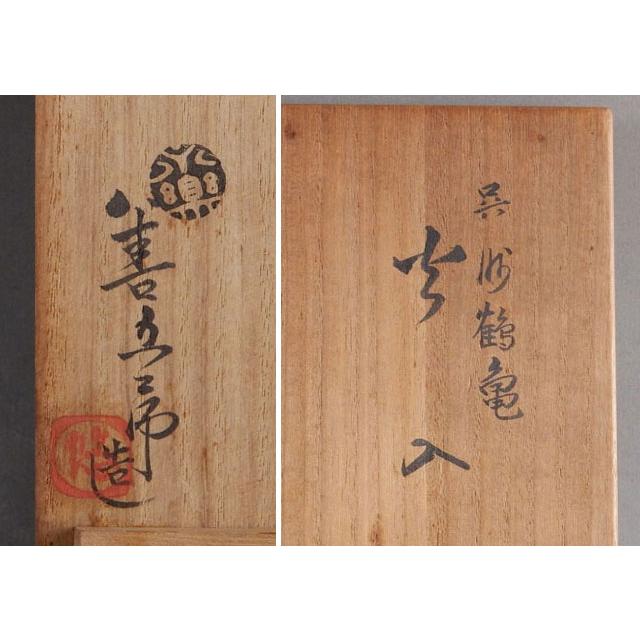 善五郎造
呉洲鶴亀
火入